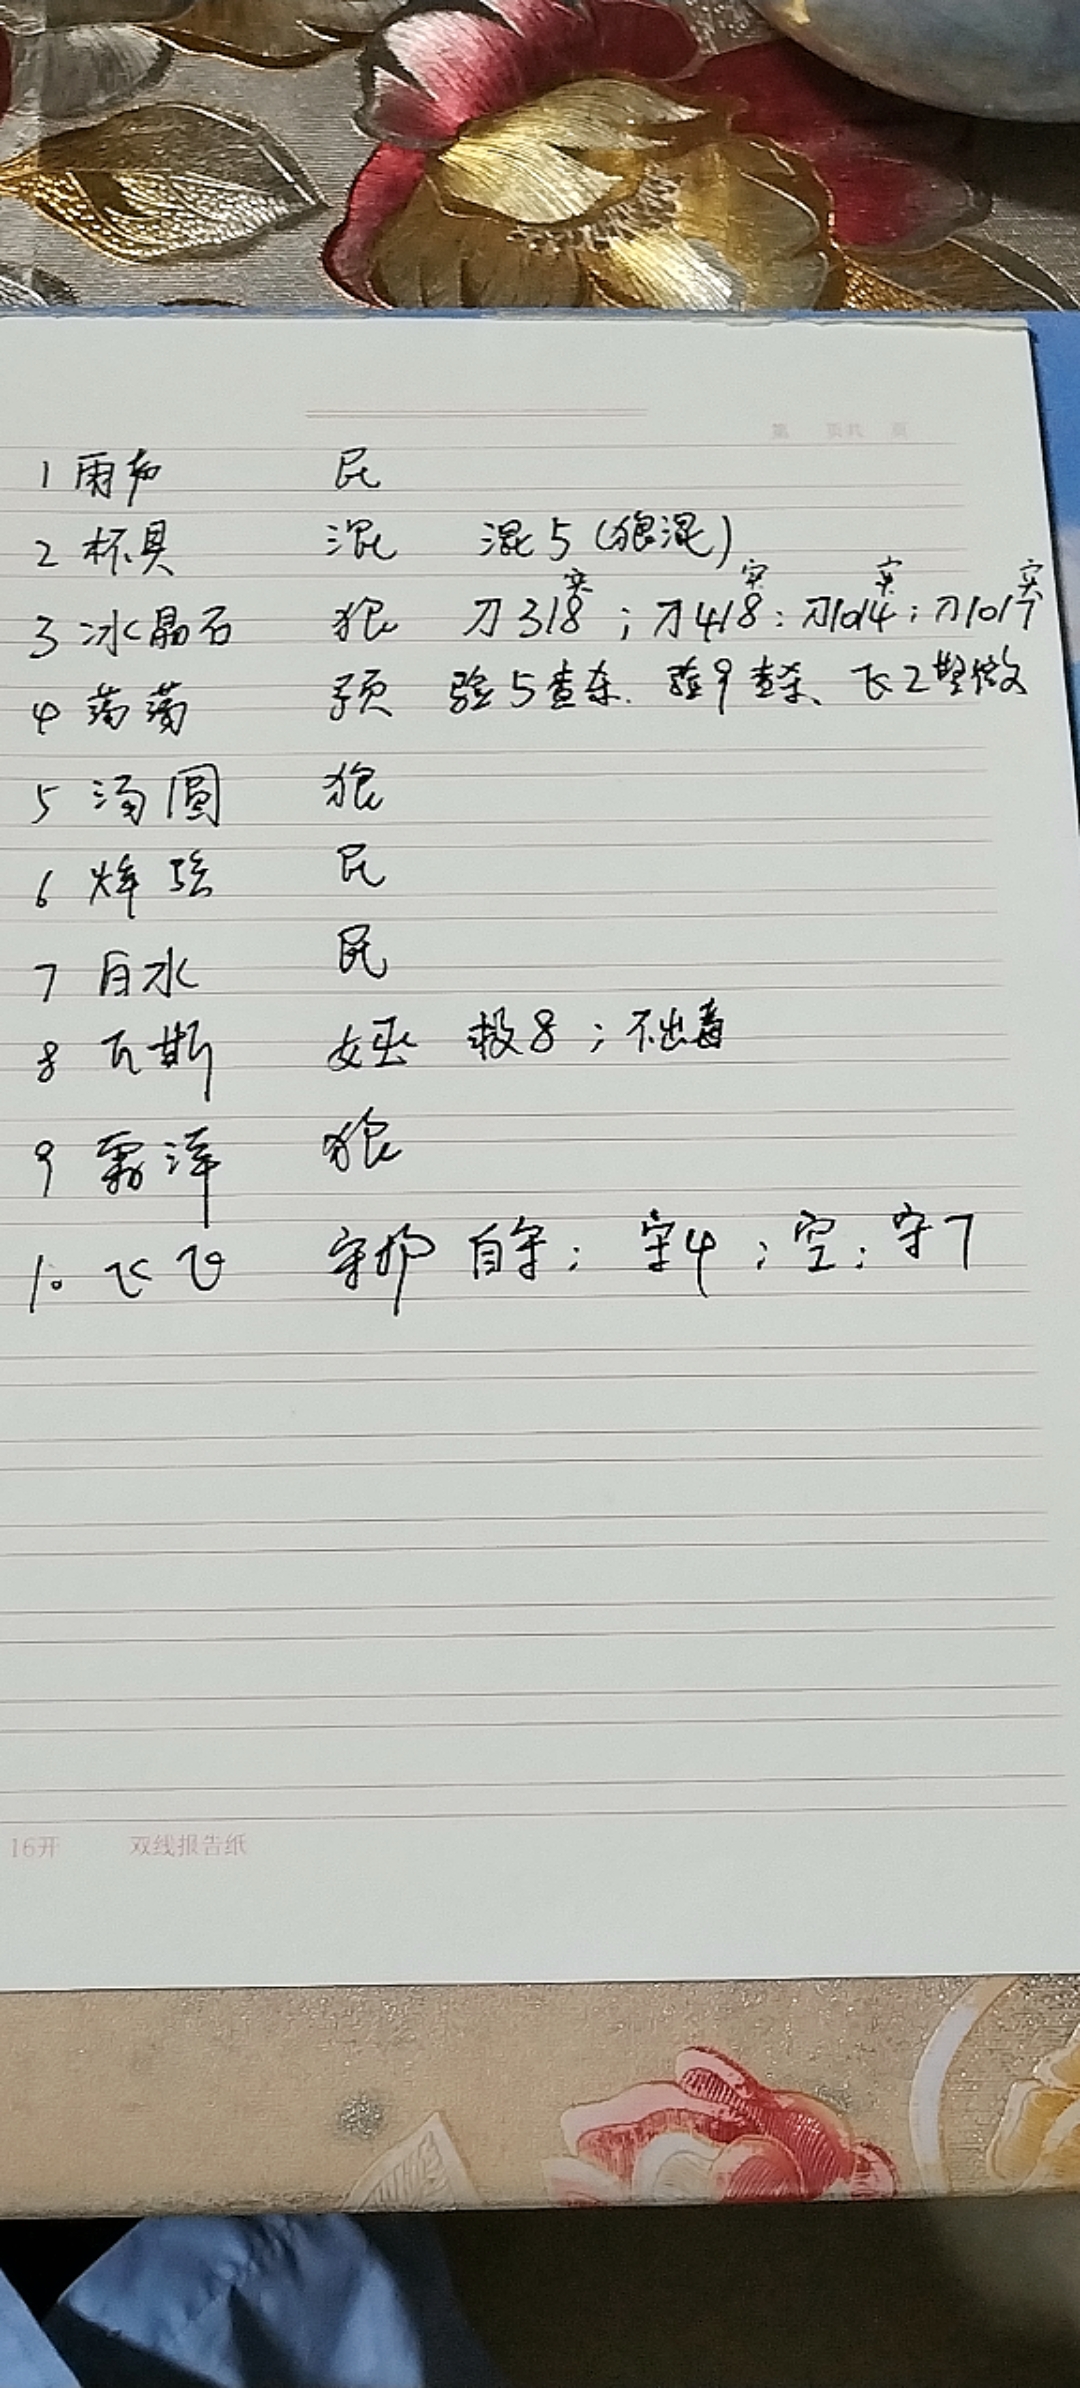 第 页共 页
1 雨声 民
2 杯具 混 混5(狼混)
实 实 实 实
3 冰晶石 狼 刀3/8;刀4/8;刀10/4;刀10/7
4 蒟蒻 预 验5查杀、验9查杀、飞2警徽
5 汤圆 狼
6 烽 民
7 白水 民
8 瓦斯 女巫 救8;不出毒
9 雾泽 狼
10 飞飞 守护 自守;守4;空;守7
16开 双线报告纸